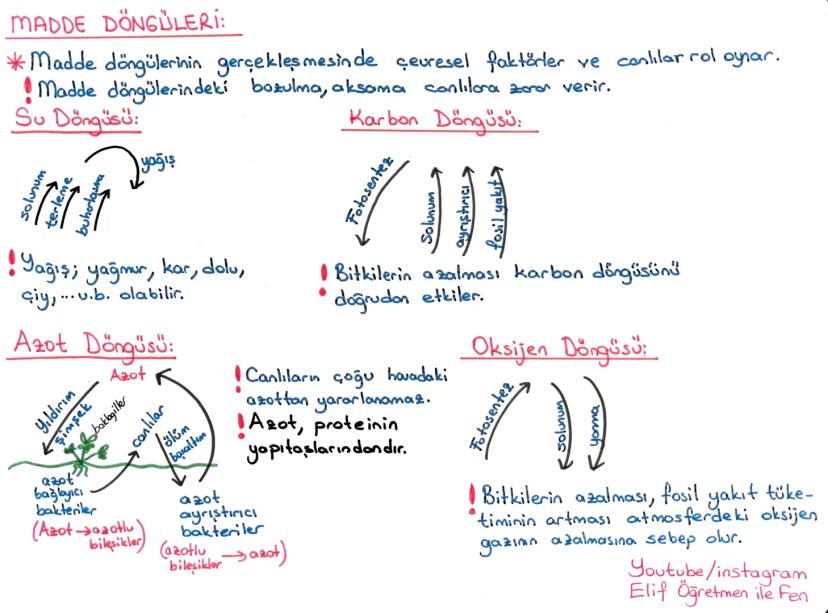 MADDE DÖNGÜLERİ:
* Madde döngülerinin gerçekleşmesinde çevresel faktörler ve canlılar rol oynar.
! Madde döngülerindeki bozulma, aksama canlılara zarar verir.
Su Döngüsü:
solunum
terleme
buharlaşma
yağış
! Yağış; yağmur, kar, dolu,
çiy, ... v.b. olabilir.
Karbon Döngüsü:
Fotosentez
Solunum
ayrıştırıcı
fosil yakıt
! Bitkilerin azalması karbon döngüsünü
doğrudan etkiler.
Azot Döngüsü:
Azot
Yıldırım
Şimşek
baklagiller
canlılar
ölüm
boşaltım
azot
bağlayıcı
bakteriler
(Azot → azotlu
bileşikler)
azot
ayrıştırıcı
bakteriler
(azotlu
bileşikler → azot)
! Canlıların çoğu havadaki
azottan yararlanamaz.
! Azot, proteinin
yapıtaşlarındandır.
Oksijen Döngüsü:
Fotosentez
solunum
yanma
! Bitkilerin azalması, fosil yakıt tüke-
timinin artması atmosferdeki oksijen
gazının azalmasına sebep olur.
Youtube/instagram
Elif Öğretmen ile Fen